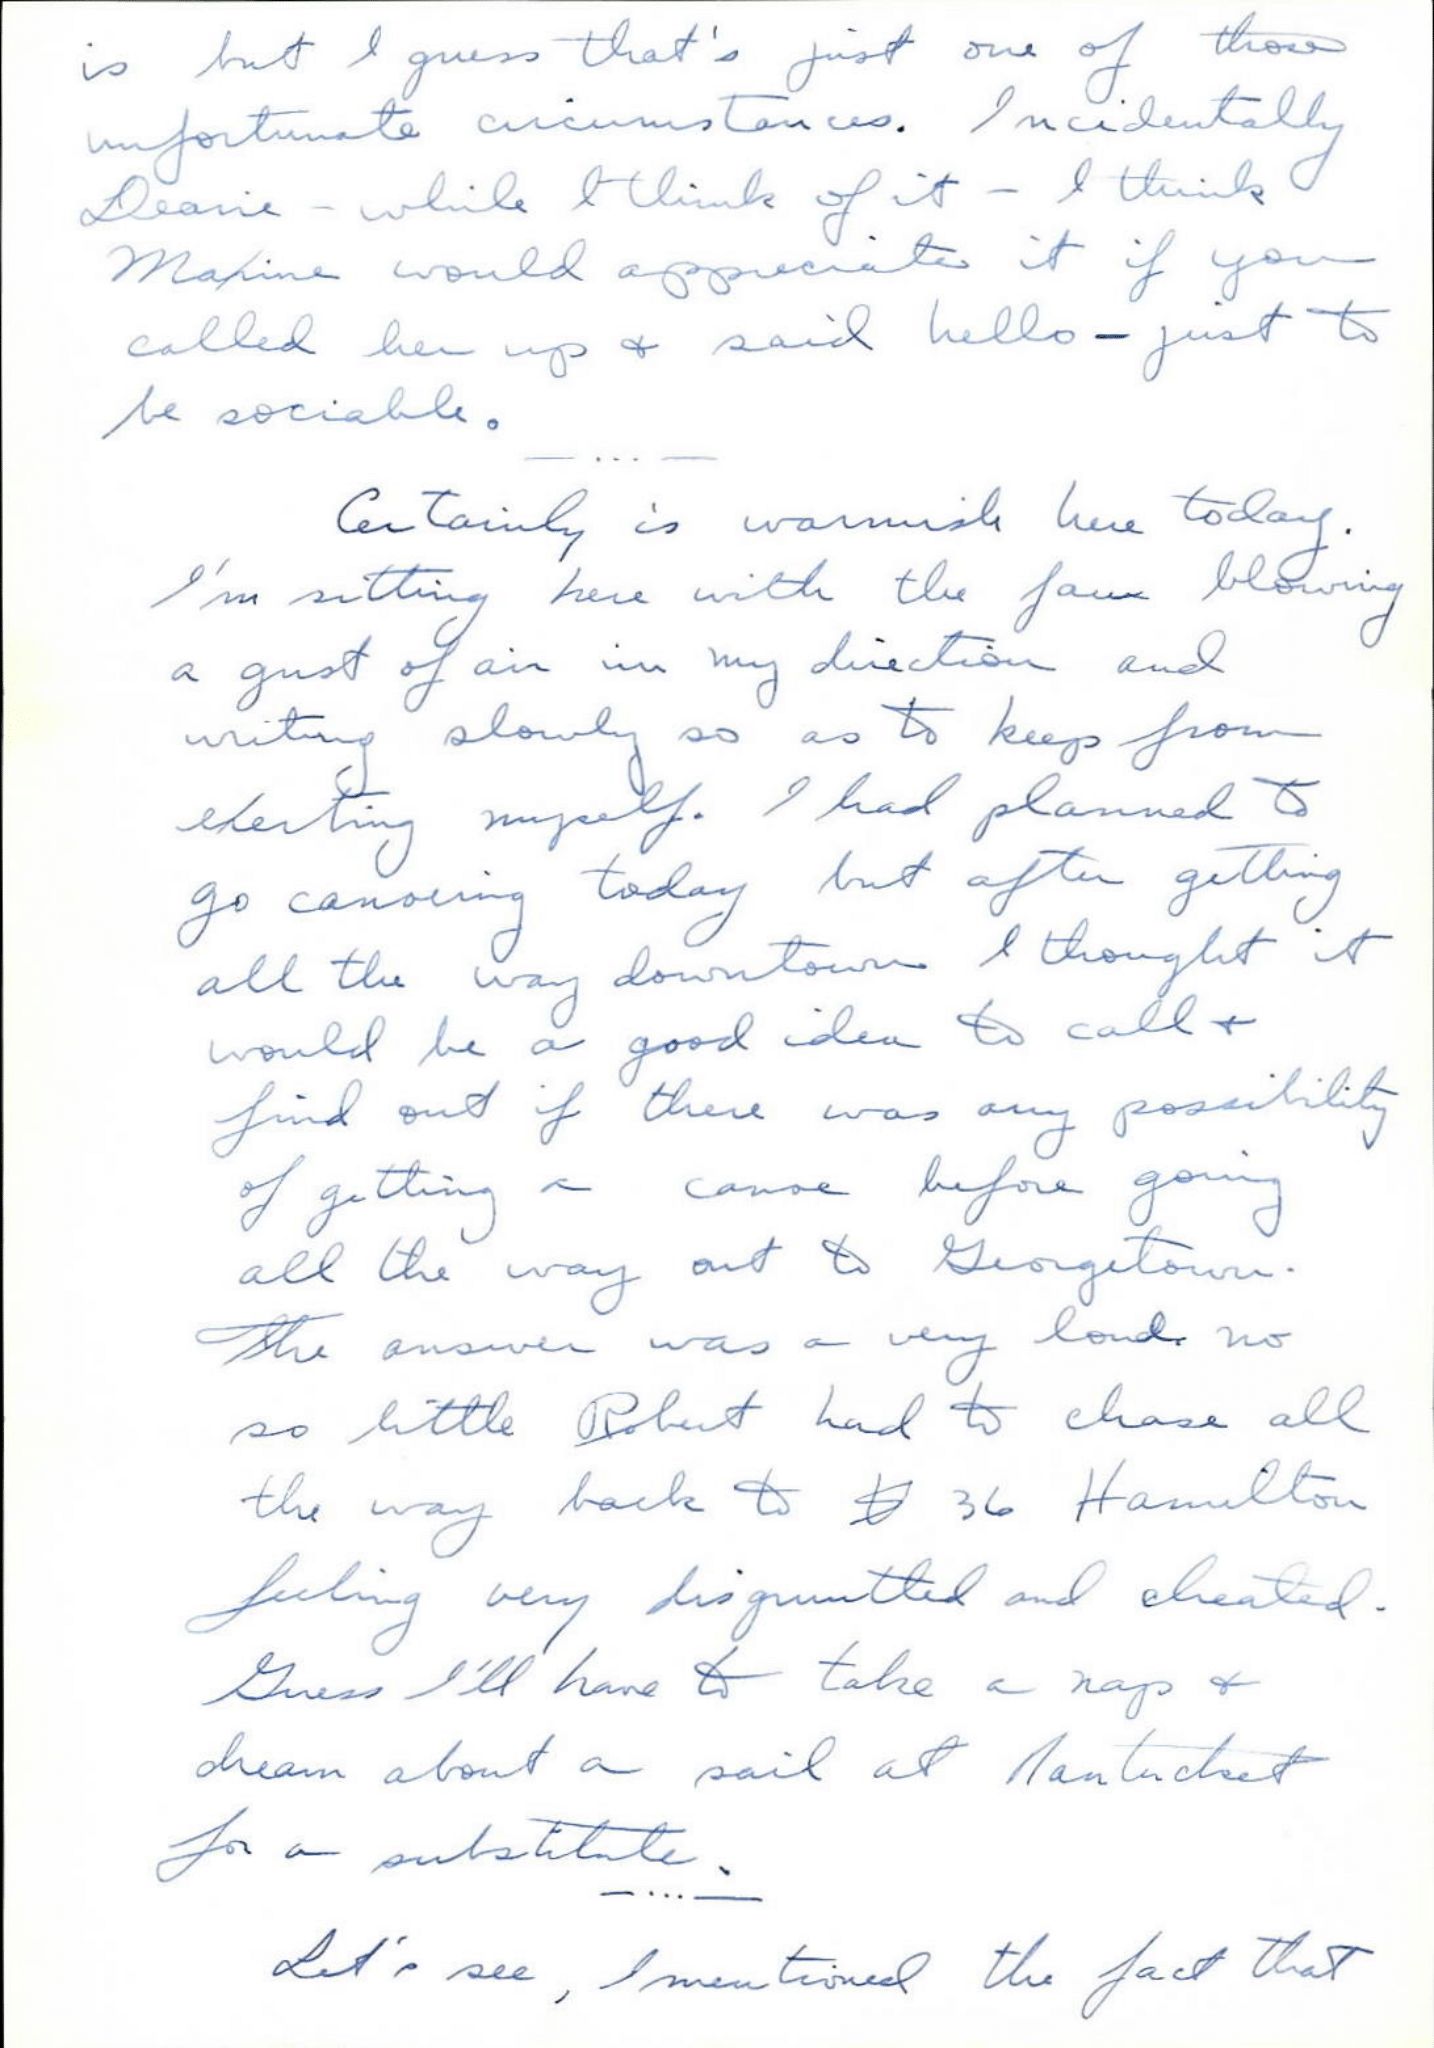 is but I guess that's just one of those
unfortunate circumstances. Incidentally
Dearie - while I think of it - I think
Maxine would appreciate it if you
called her up & said hello - just to
be sociable.
— ... —
Certainly is warmish here today.
I'm sitting here with the fan blowing
a gust of air in my direction and
writing slowly so as to keep from
exerting myself. I had planned to
go canoeing today but after getting
all the way downtown I thought it
would be a good idea to call &
find out if there was any possibility
of getting a canoe before going
all the way out to Georgetown.
The answer was a very loud no
so little Robert had to chase all
the way back to 36 Hamilton
feeling very disgruntled and cheated.
Guess I'll have to take a nap &
dream about a sail at Nantucket
for a substitute.
— ... —
Let's see, I mentioned the fact that